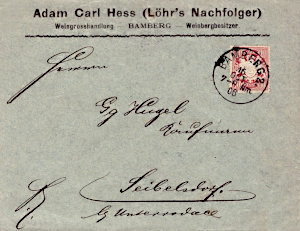 Adam Carl Hess (Löhr's Nachfolger)
Weingrosshandlung — BAMBERG — Weinbergbesitzer
BAMBERG 2
7-8 Nm.
00
Herrn
Gg Hugel
Kaufmann
Seibelsdorf.
b/ Unterrodach